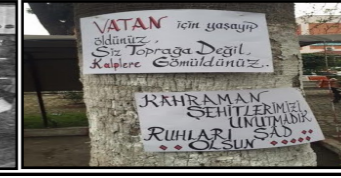 VATAN için yaşayıp
öldünüz.
Siz Toprağa Değil,
Kalplere Gömüldünüz..
KAHRAMAN
ŞEHİTLERİMİZİ
UNUTMADIK
RUHLARI ŞAD
OLSUN